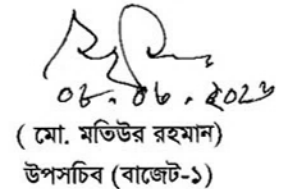 ০৮.০৬.২০২৬
( মো. মতিউর রহমান)
উপসচিব (বাজেট-১)